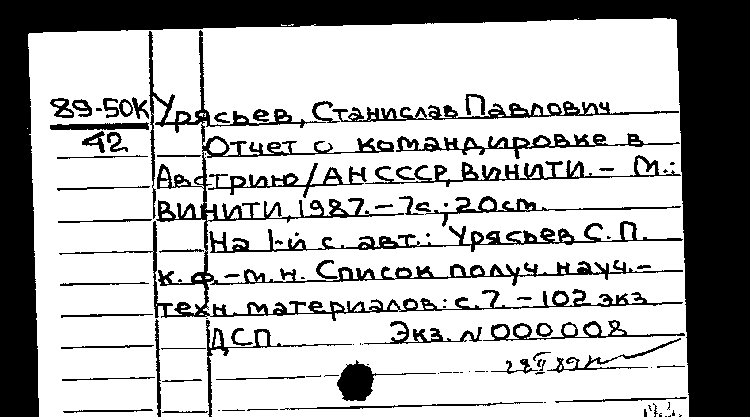 89-50К
42
Урясьев, Станислав Павлович
Отчет о командировке в
Австрию/АН СССР, ВИНИТИ. – М.:
ВИНИТИ, 1987. – 7с.; 20 см.
На 1-й с. авт.: Урясьев С.П.
к.ф.-м.н. Список получ. науч.-
техн. материалов: с.7. – 102 экз
ДСП. Экз. N 000008